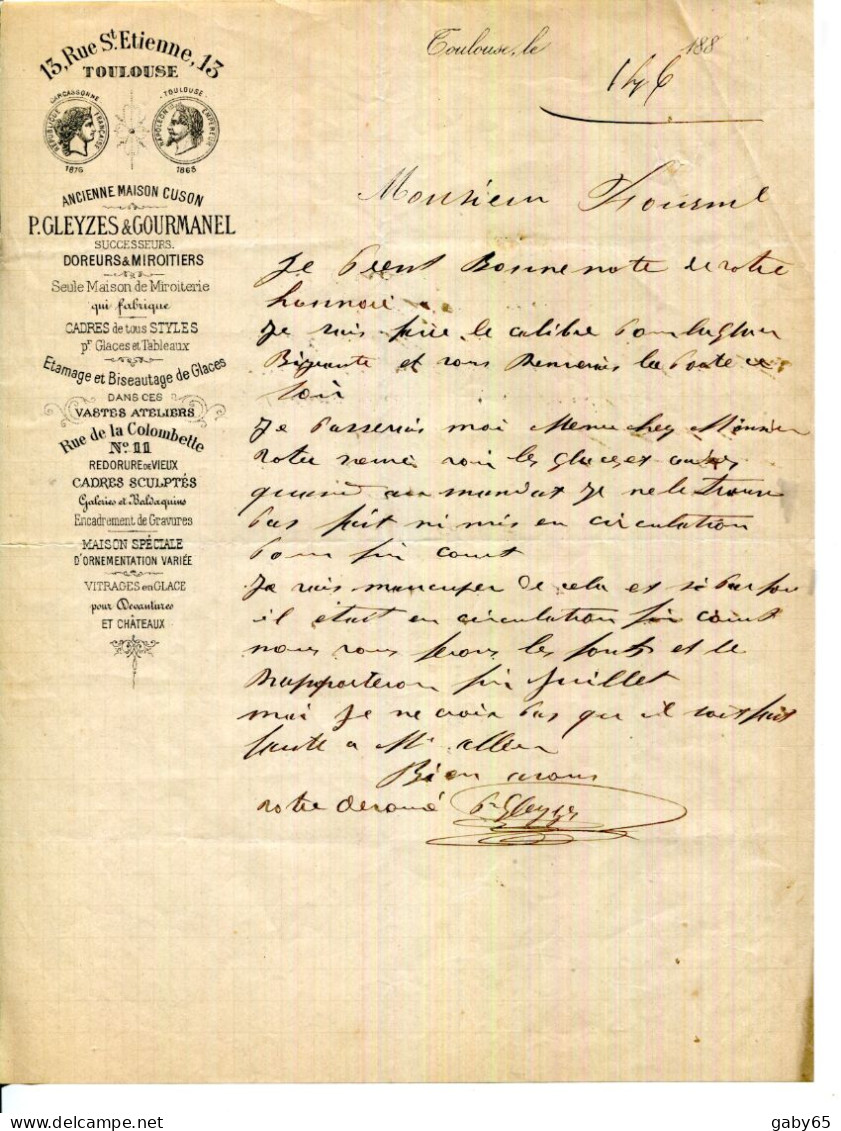 13, Rue St. Etienne, 13
TOULOUSE
CARCASSONNE
TOULOUSE
REPUBLIQUE FRANÇAISE
NAPOLEON III EMPEREUR
1876
1865
ANCIENNE MAISON CUSON
P. GLEYZES & GOURMANEL
SUCCESSEURS.
DOREURS & MIROITIERS
Seule Maison de Miroiterie
qui fabrique
CADRES de tous STYLES
pr. Glaces et Tableaux
Etamage et Biseautage de Glaces
DANS CES
VASTES ATELIERS
Rue de la Colombette
No. 11
REDORURE DE VIEUX
CADRES SCULPTÉS
Galeries et Baldaquins
Encadrement de Gravures
MAISON SPÉCIALE
D'ORNEMENTATION VARIÉE
VITRAGES en GLACE
pour Devantures
ET CHÂTEAUX
Toulouse, le 188
Monsieur
Je Prent Bonne note de votre
honnoré
Je vais faire le calibre
et vous la Porte ce
soir
Je Passerais moi Meme chez Monsieur
votre voir les glaces et
quand au mandat Je ne le trouve
Pas fait ni mis en circulation
Pour fin court
Je vais de cela et si Par
il était en circulation fin court
nous vous ferons les fonts et le
Rapporteron fin Juillet
mai Je ne crois Pas que il soit fait
a Mr
Bien avous
votre devoué Pre Gleyzes
gaby65